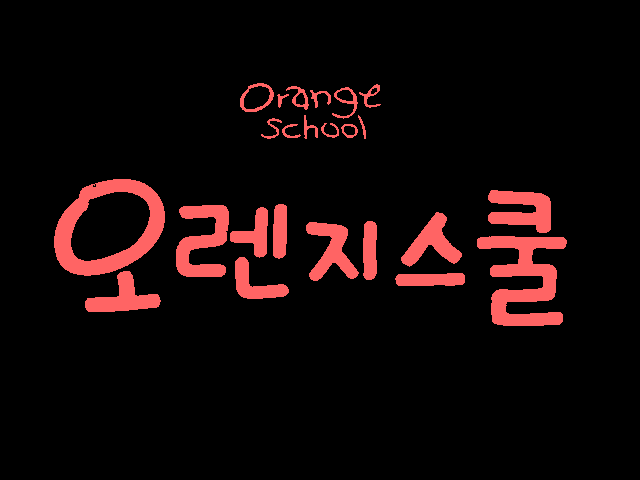 Orange
school
오렌지스쿨